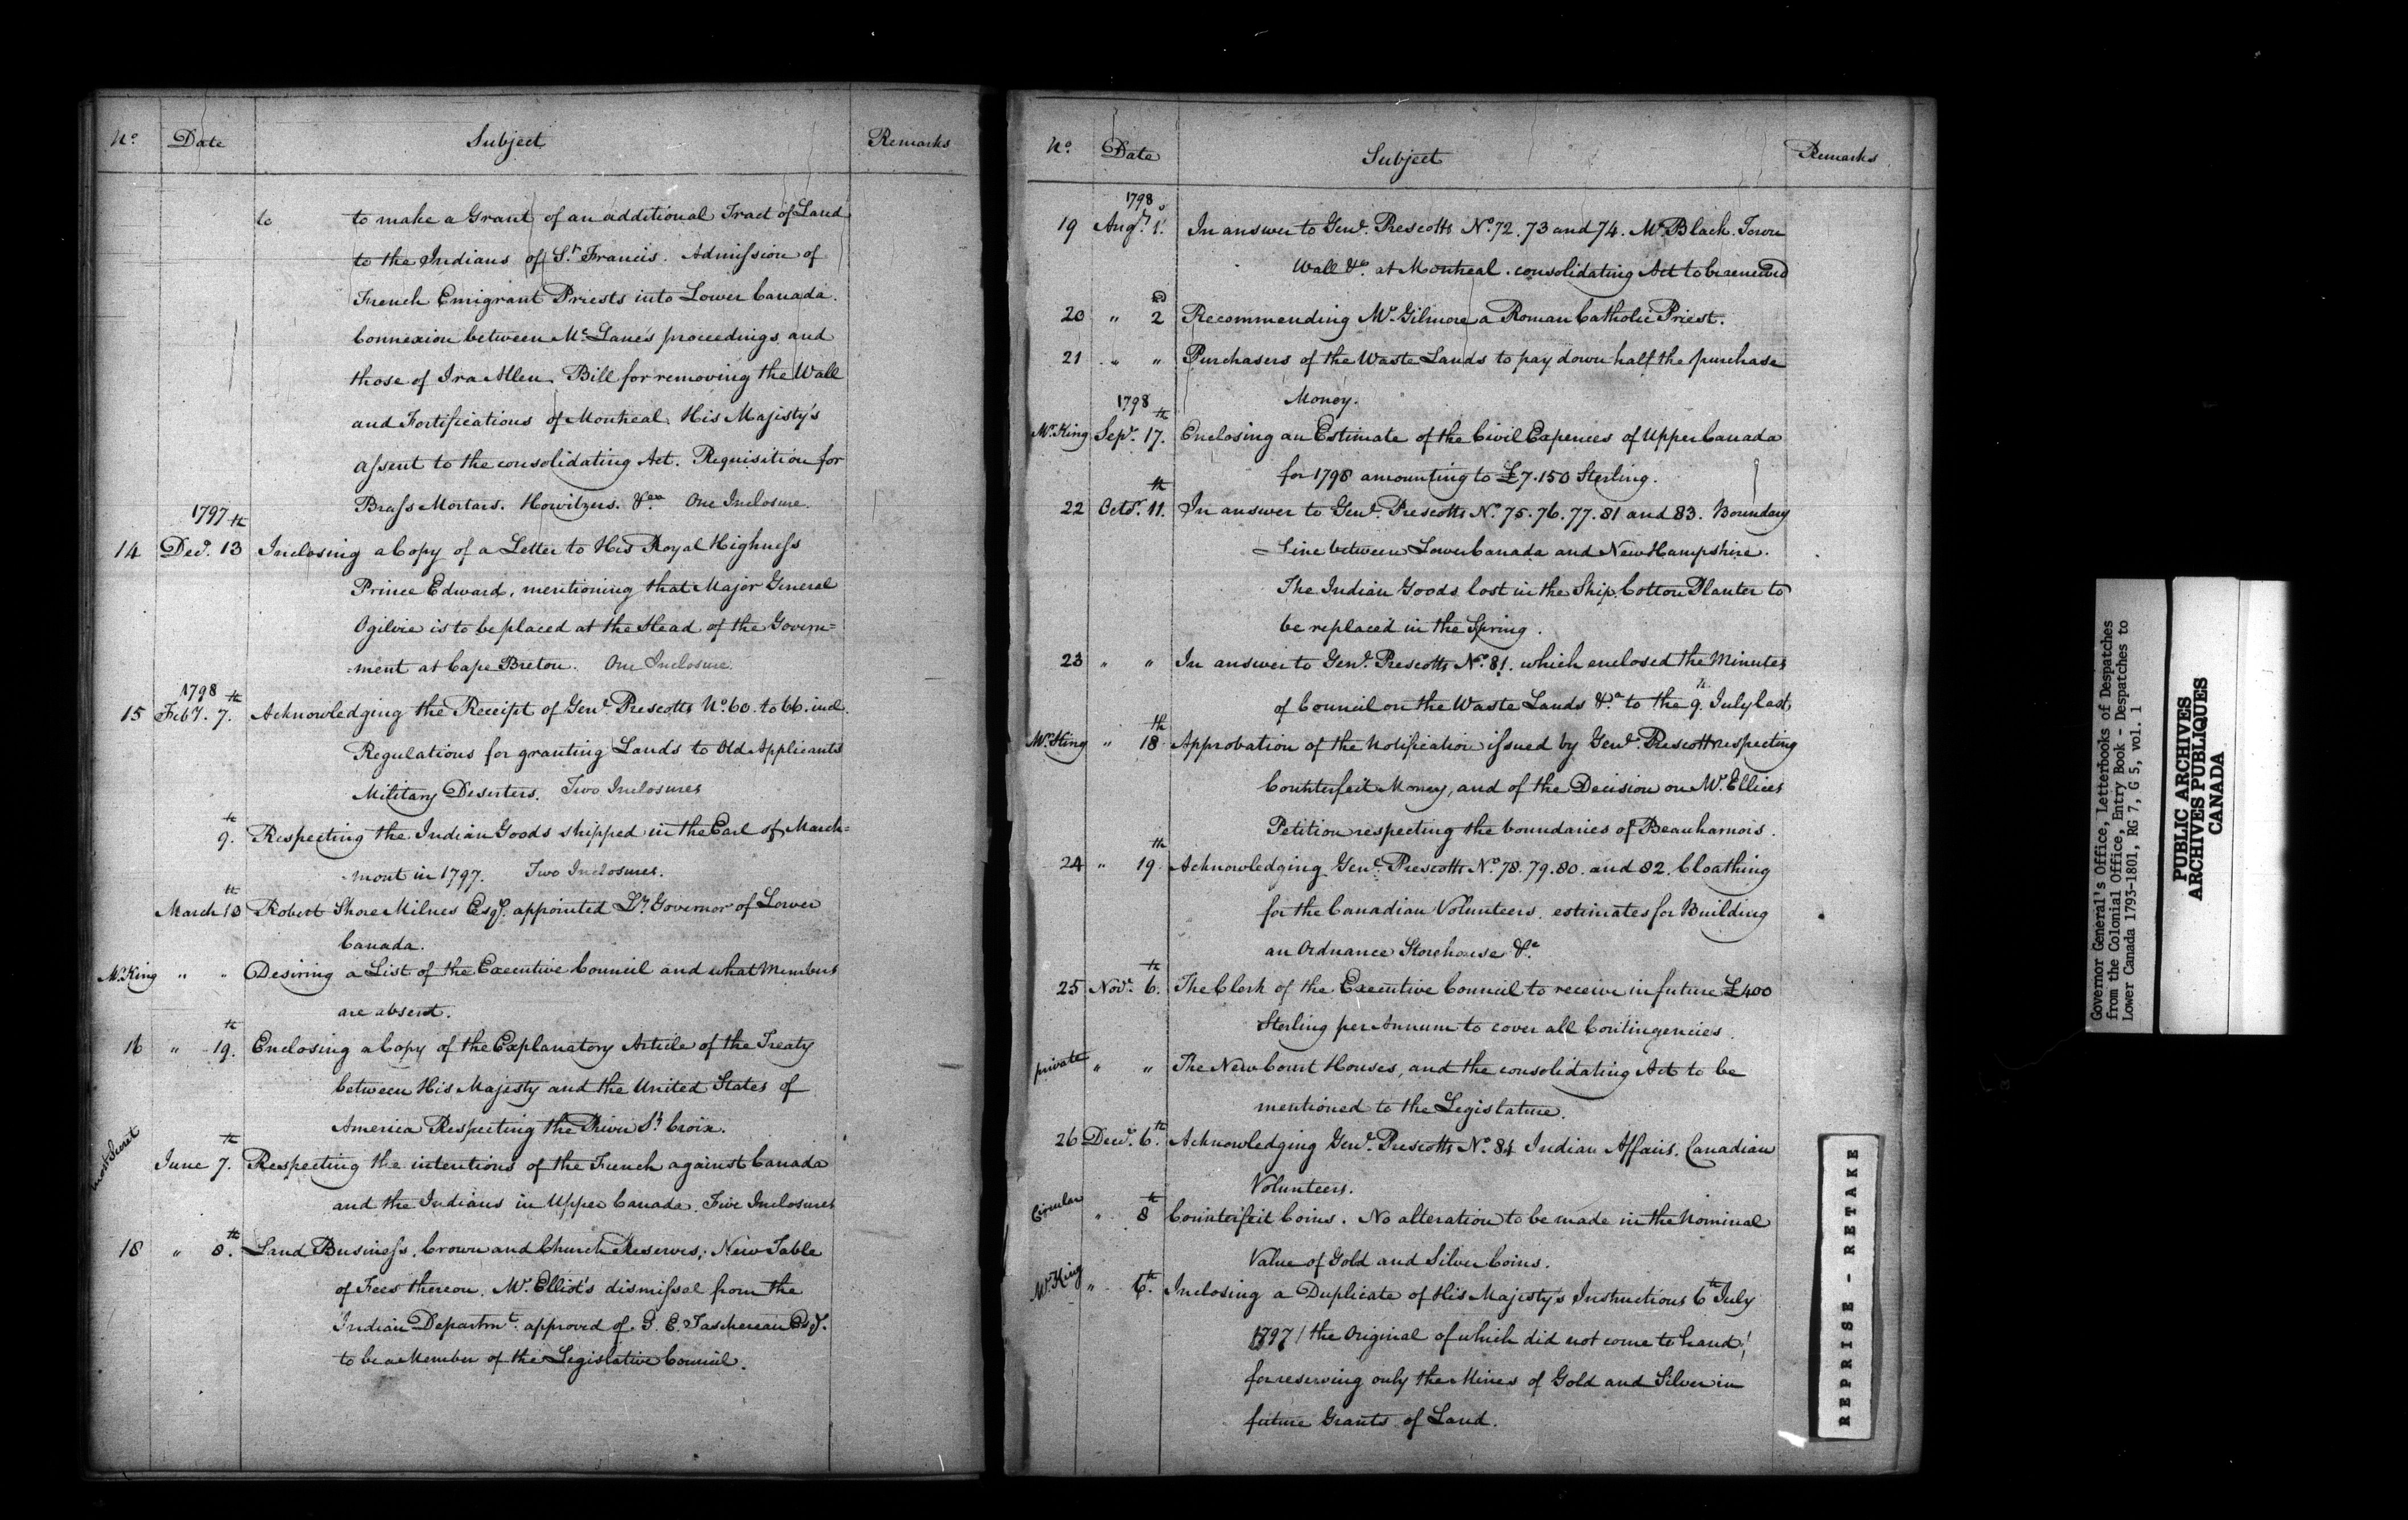 No. Date Subject Remarks
to to make a Grant of an additional Tract of Land
to the Indians of St. Francis. Admission of
French Emigrant Priests into Lower Canada.
Connexion between Mc.Lane's proceedings, and
those of Ira Allen. Bill for removing the Wall
and Fortifications of Montreal. His Majesty's
assent to the consolidating Act. Requisition for
Brass Mortars. Howitzers. &ca One Inclosure.
1797
14 Decr. 13th Inclosing a Copy of a Letter to His Royal Highness
Prince Edward, mentioning that Major General
Ogilvie is to be placed at the Head of the Govern=
-ment at Cape Breton. One Inclosure.
1798
15 Feby. 7th. Acknowledging the Receipt of Genl. Prescotts No. 60. to 66. incl.
Regulations for granting Lands to Old Applicants
Military Deserters. Two Inclosures
9th. Respecting the Indian Goods shipped in the Earl of March=
-mont in 1797. Two Inclosures.
March 10th Robert Shore Milnes Esqr. appointed Lt. Governor of Lower
Canada.
Mr. King " " Desiring a List of the Executive Council and what Members
are absent.
16 " 19th. Enclosing a Copy of the Explanatory Article of the Treaty
between His Majesty and the United States of
America Respecting the River St. Croix.
most Secret
June 7th. Respecting the intentions of the French against Canada
and the Indians in Upper Canada. Five Inclosures
18 " 8th. Land Business, Crown and Church Reserves; New Table
of Fees thereon. Mr. Elliot's dismissal from the
Indian Departmt. approved of. G. E. Taschereau Esqr.
to be a Member of the Legislative Council.
No. Date Subject Remarks
1798
19 Augt. 1. In answer to Genl. Prescotts No. 72. 73 and 74. Mr. Black. Town
Wall &c. at Montreal. consolidating Act to be renewed
20 " 2d Recommending Mr. Gilmore a Roman Catholic Priest.
21 " " Purchasers of the Waste Lands to pay down half the purchase
Money.
1798
Mr. King Sepr. 17th. Enclosing an Estimate of the Civil Expences of Upper Canada
for 1798 amounting to £7.150 Sterling.
22 Octor. 11th. In answer to Genl. Prescotts No. 75. 76. 77. 81 and 83. Boundary
Line between Lower Canada and New Hampshire.
The Indian Goods lost in the Ship Cotton Planter to
be replaced in the Spring.
23 " " In answer to Genl. Prescotts No. 81. which enclosed the Minutes
of Council on the Waste Lands &ca to the 9th. July last,
Mr. King " 18th Approbation of the Notification issued by Genl. Prescott respecting
Counterfeit Money, and of the Decision on Mr. Ellices
Petition respecting the boundaries of Beauharnois.
24 " 19th Acknowledging Genl. Prescotts No. 78. 79. 80. and 82. Cloathing
for the Canadian Volunteers. estimates for Building
an Ordnance Storehouse &c.
25 Novr. 6th. The Clerk of the Executive Council to receive in future £400
Sterling per Annum to cover all Contingencies.
private " " The New Court Houses, and the consolidating Act to be
mentioned to the Legislature.
26 Decr. 6th. Acknowledging Genl. Prescotts No. 84 Indian Affairs. Canadian
Volunteers.
Circular " 8th Counterfeit Coins. No alteration to be made in the Nominal
Value of Gold and Silver Coins.
Mr. King " 6th. Inclosing a Duplicate of His Majesty's Instructions 6th July
1797 / the Original of which did not come to hand /
for reserving only the Mines of Gold and Silver in
future Grants of Land.
REPRISE - RETAKE
Governor General's Office, Letterbooks of Despatches
from the Colonial Office, Entry Book - Despatches to
Lower Canada 1793-1801, RG 7, G 5, vol. 1
PUBLIC ARCHIVES
ARCHIVES PUBLIQUES
CANADA